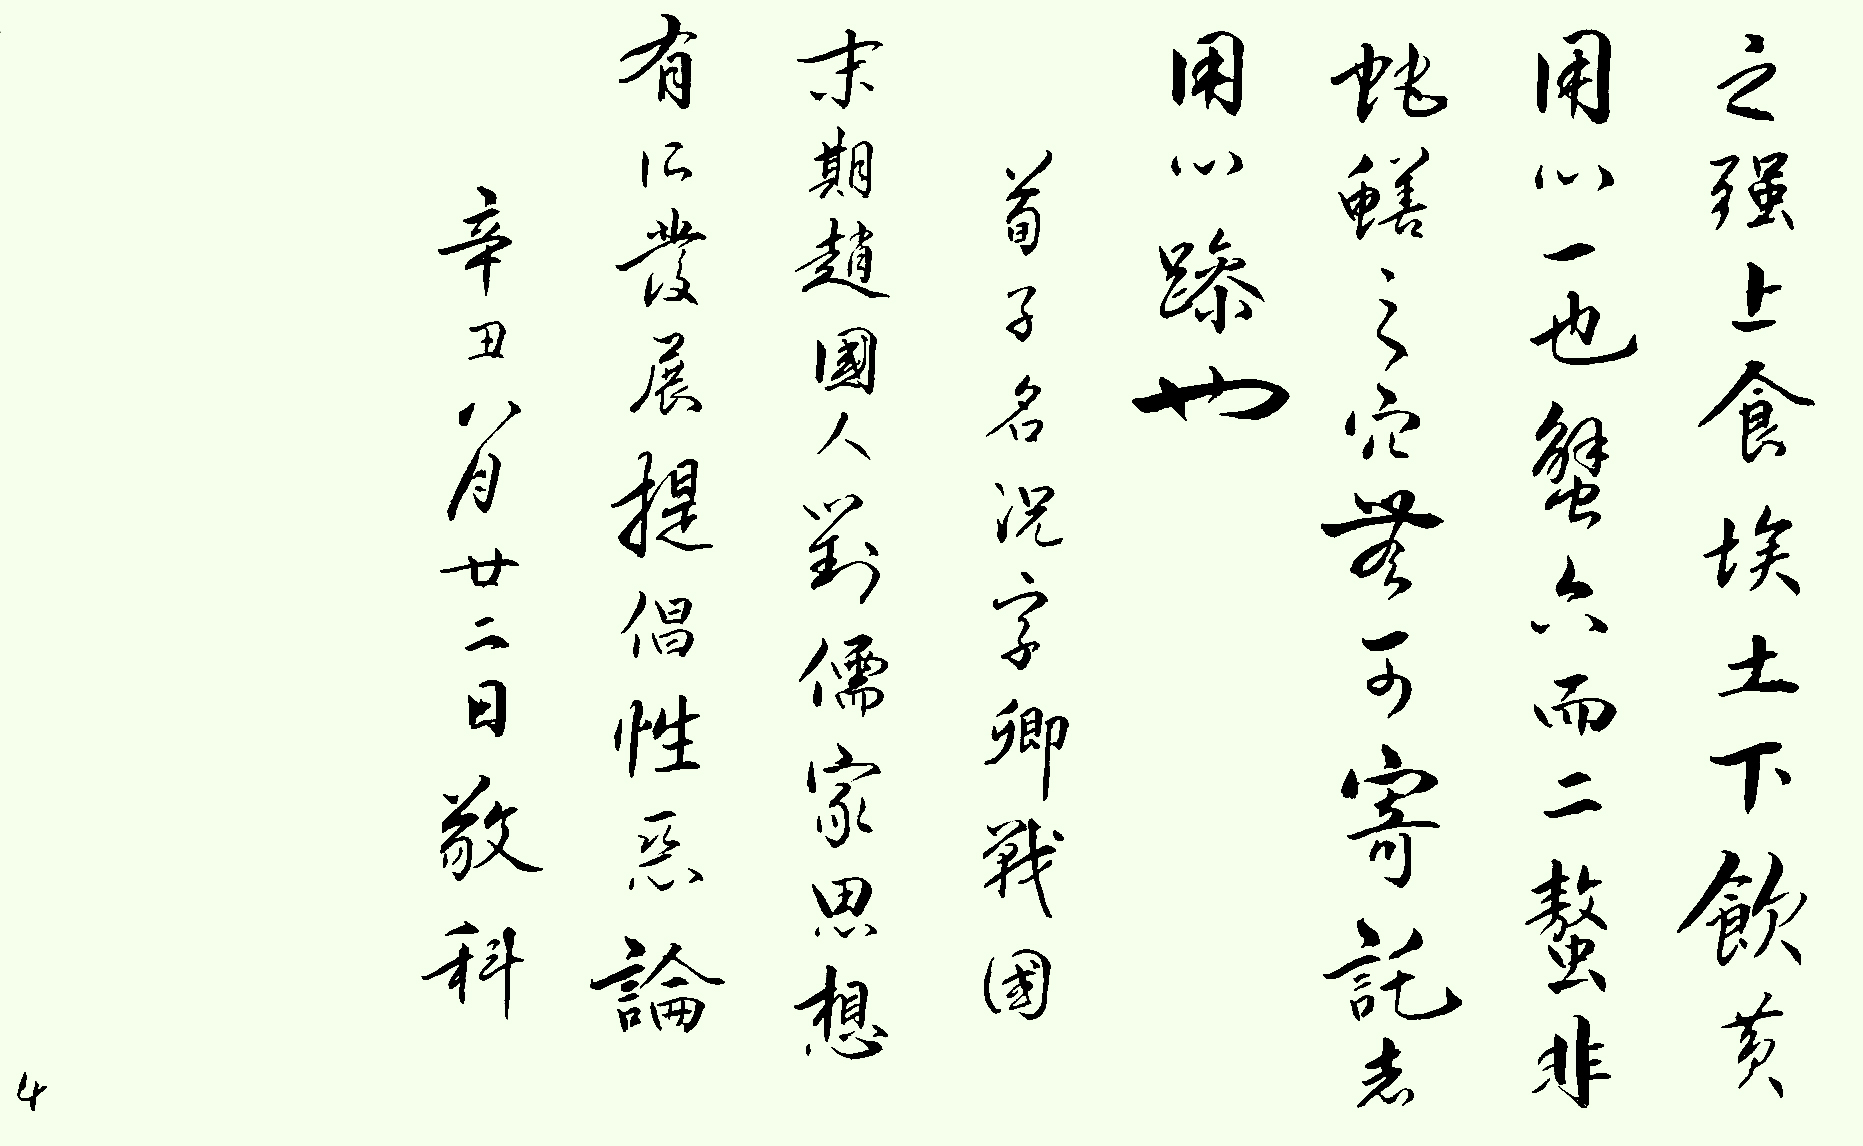 之强上食埃土下飲黄
用心一也蟹六而二螯非
蛇鱔之穴無可寄託者
用心躁也
荀子名況字卿戰國
末期趙國人對儒家思想
有所發展提倡性惡論
辛丑八月廿二日敬科
4